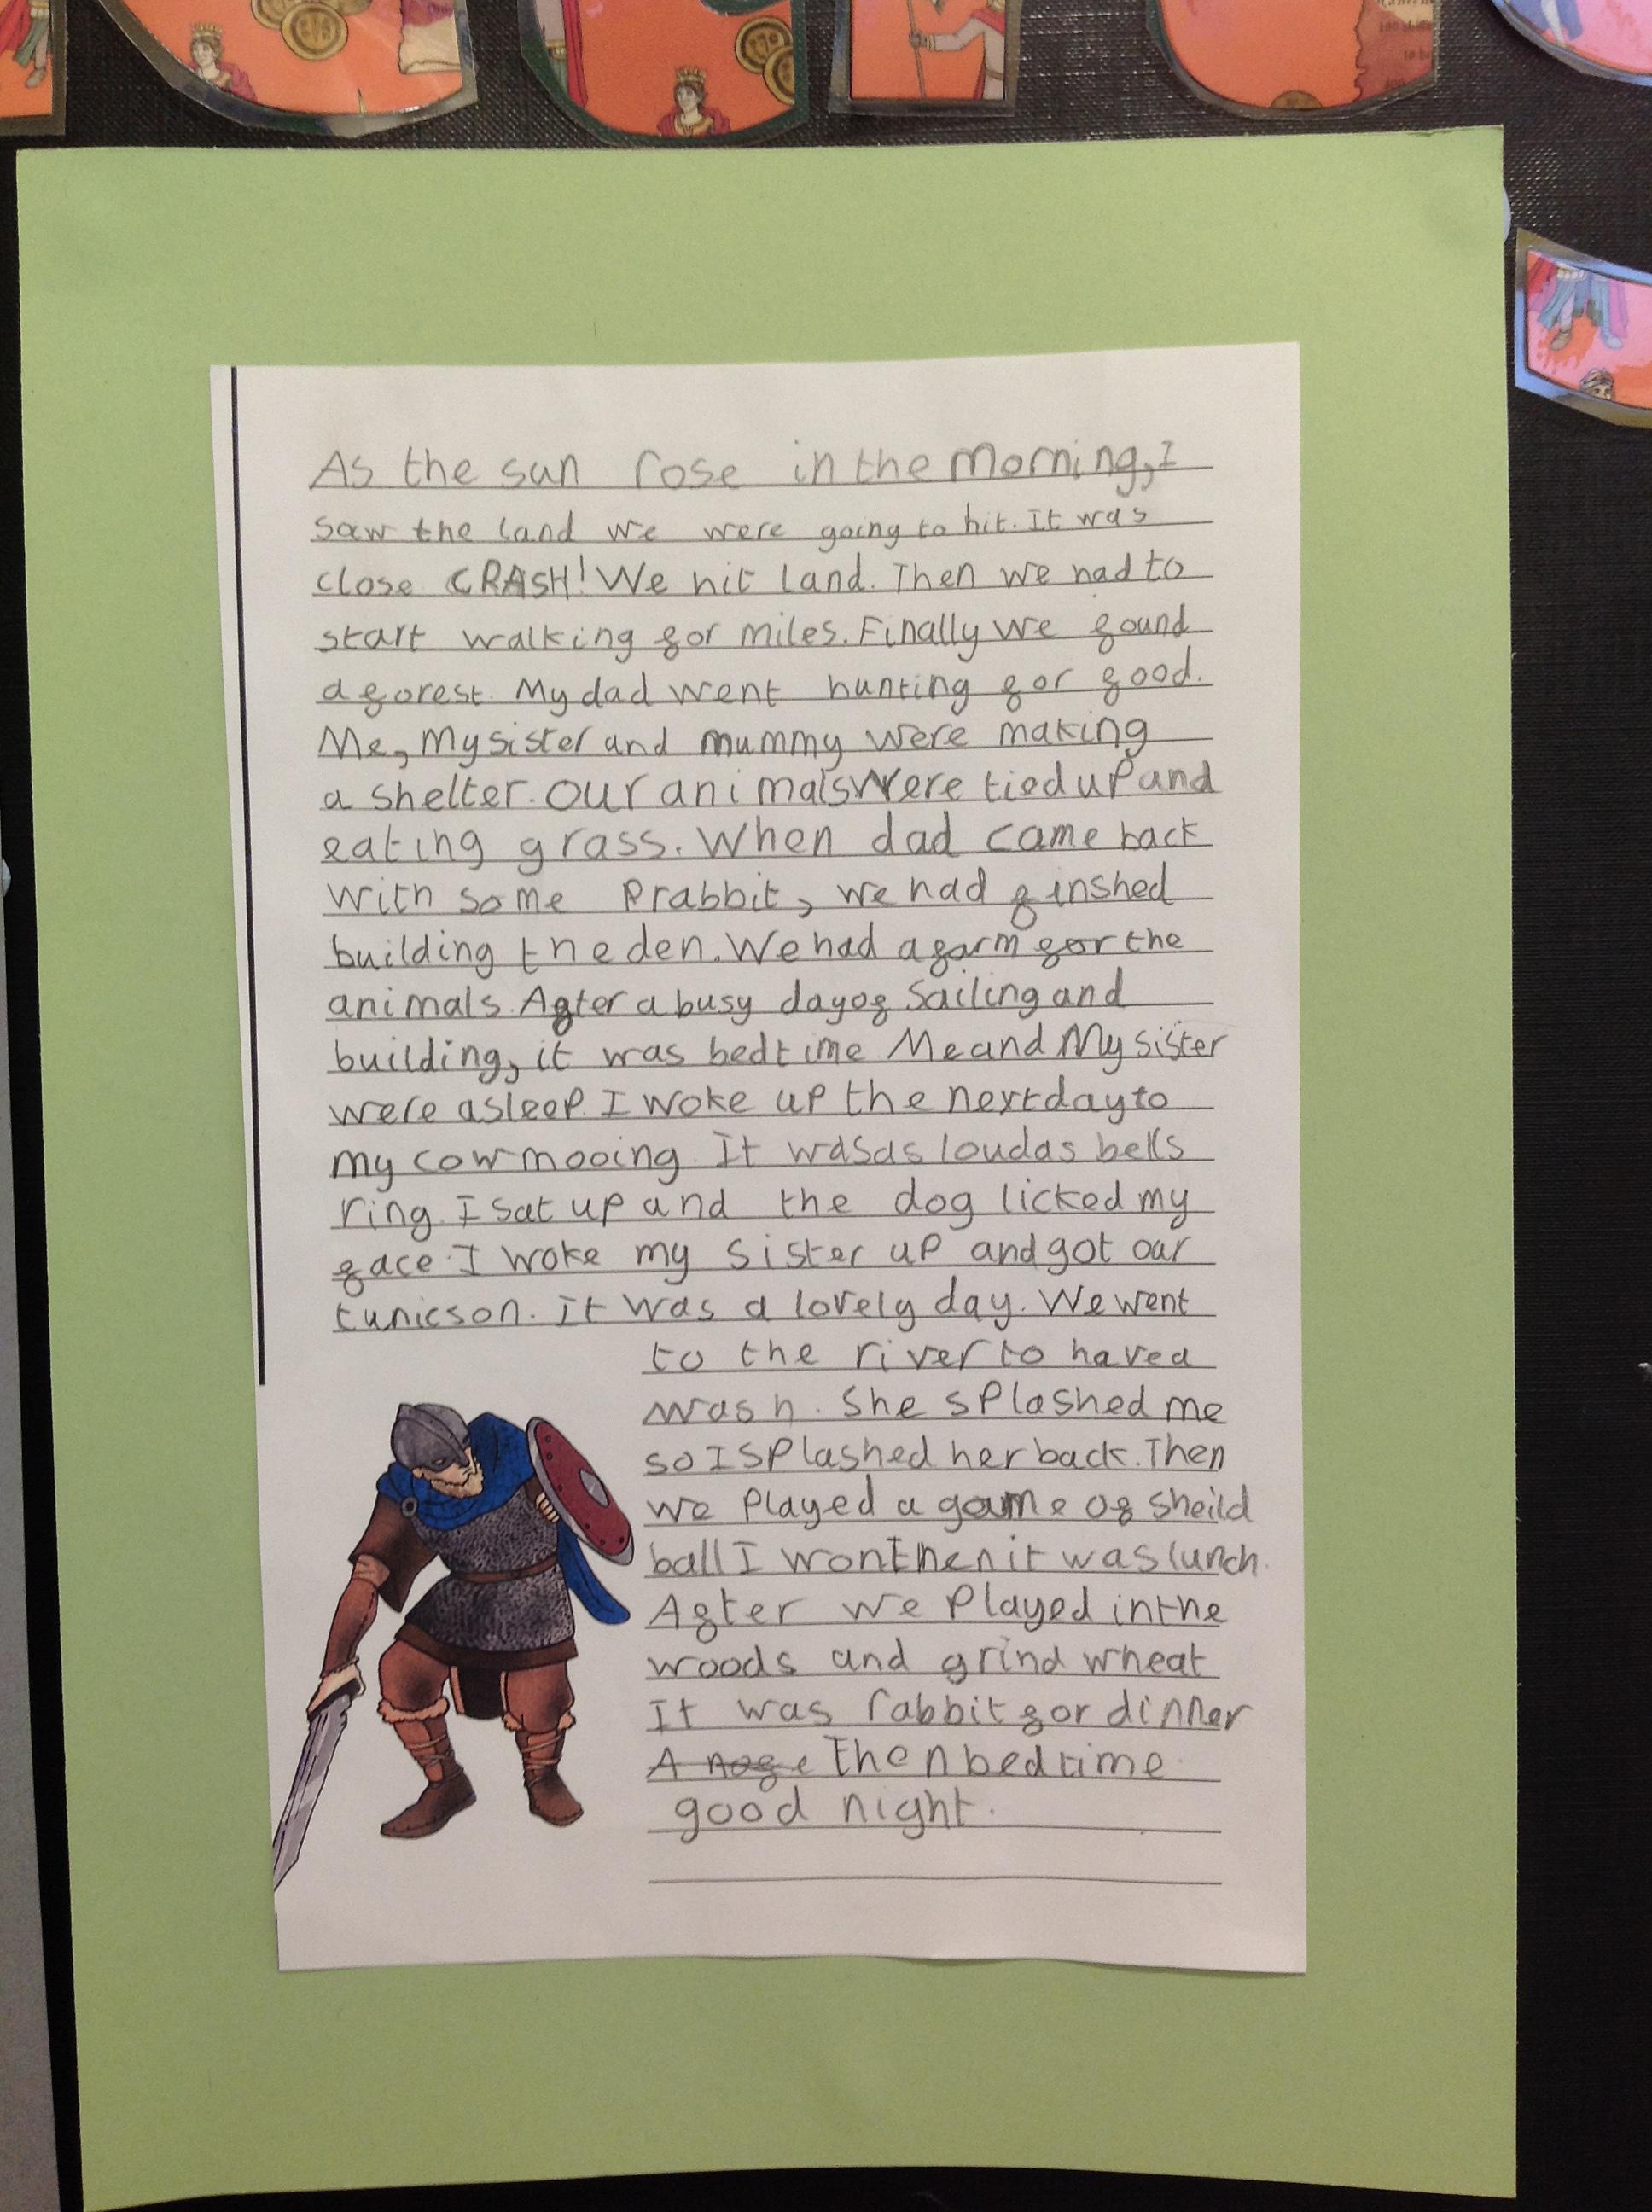 As the sun rose in the morning, I
saw the land we were going to hit. It was
close. CRASH! We hit land. Then we had to
start walking for miles. Finally we found
a forest. My dad went hunting for food.
Me, My sister and mummy were making
a shelter. Our animals were tied up and
eating grass. When dad came back
with some Prabbit, we had finshed
building the den. We had a farm for the
animals. After a busy day of Sailing and
building, it was bedtime Me and My sister
were asleep. I woke up the next day to
my cow mooing. It was as loud as bells
ring. I sat up and the dog licked my
face. I woke my sister up and got our
tunics on. It was a lovely day. We went
to the river to have a
wash. She splashed me
so I splashed her back. Then
we played a game of sheild
ball I won then it was lunch.
After we played in the
woods and grind wheat
It was rabbit for dinner
A Then bedtime
good night.